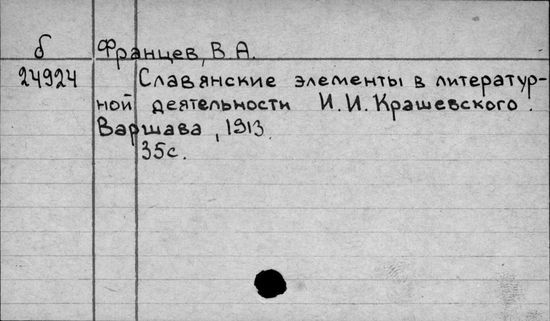 б Францев, В.А.
24924 Славянские элементы в литератур-
ной деятельности И.И.Крашевского.
Варшава, 1913.
35с.